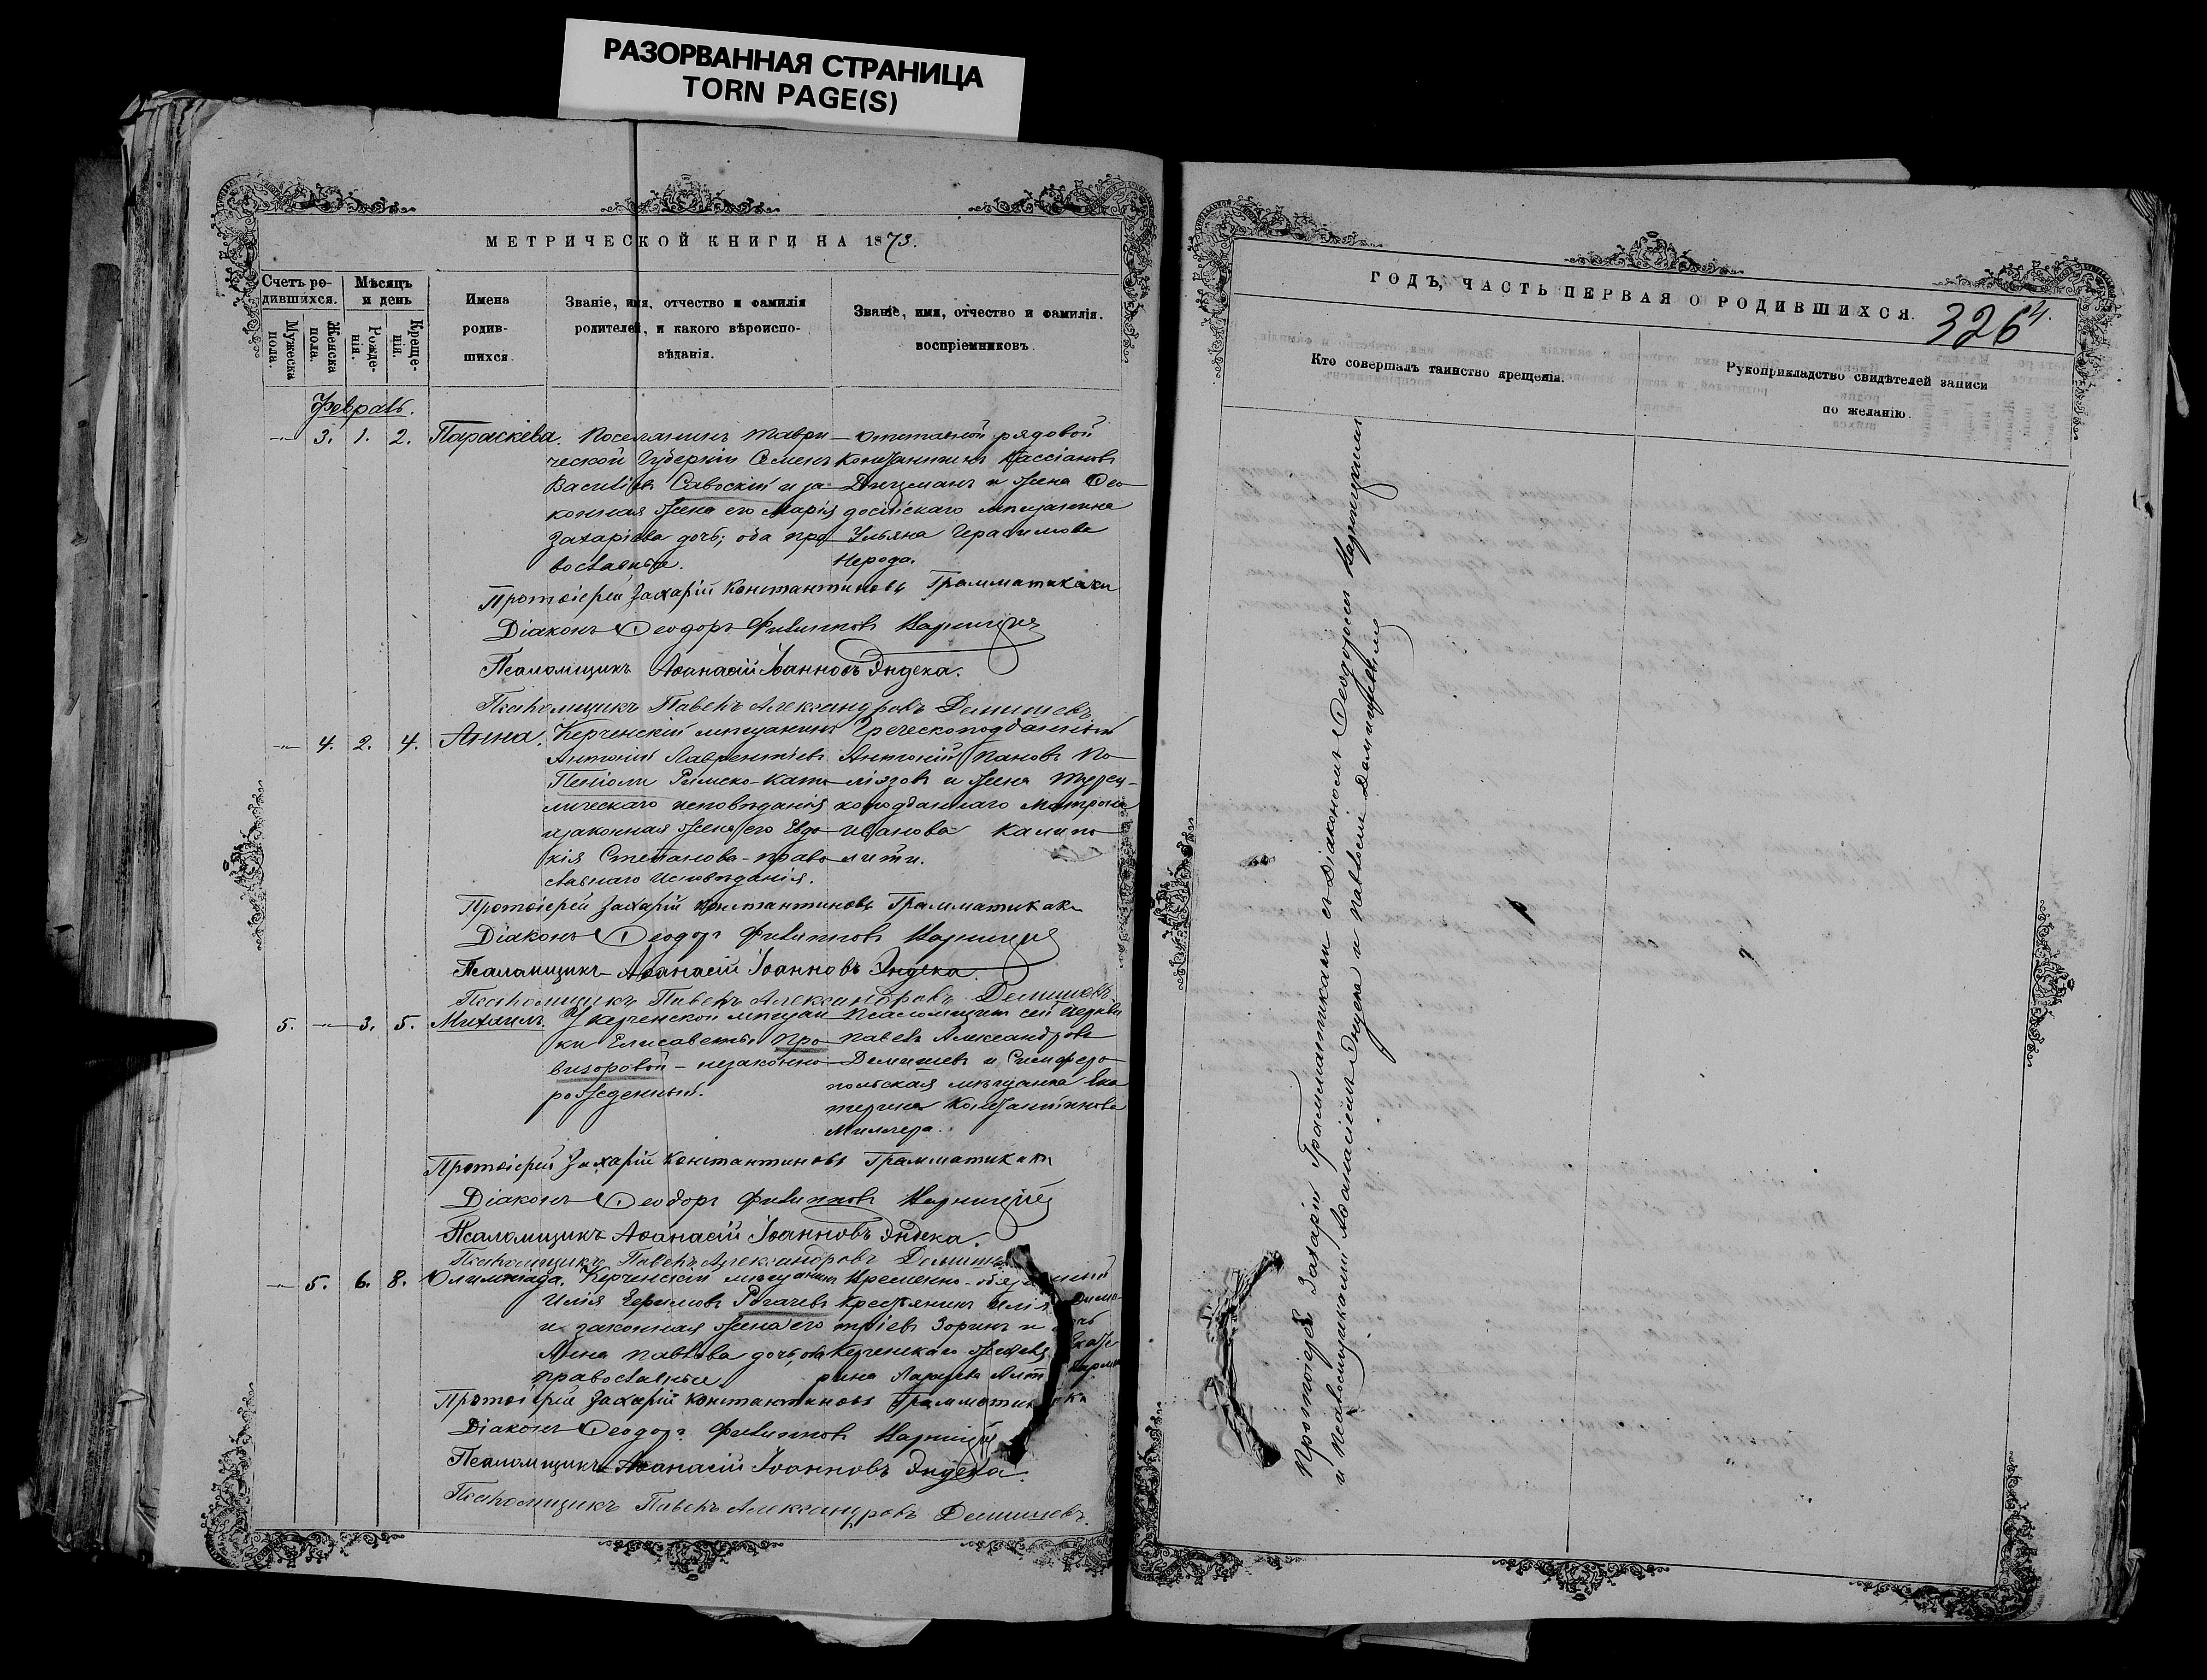 РАЗОРВАННАЯ СТРАНИЦА
TORN PAGE(S)
МЕТРИЧЕСКОЙ КНИГИ НА 1873.
Счетъ ро-
дившихся.
Мѣсяцъ
и день
Мужеска
пола.
Женска
пола.
Рожде-
нія.
Креще-
нія.
Имена
родив-
шихся.
Званіе, имя, отчество и фамилія
родителей, и какого вѣроиспо-
вѣданія.
Званіе, имя, отчество и фамилія.
воспріемниковъ.
Февраль.
3. 1. 2. Параскева. Поселянинъ Таври-
ческой Губерніи Семенъ
Василіевъ Савоскій и за-
конная жена его Марія
Захаріева дочь; оба пра-
вославные.
отставной рядовой
Константинъ Кассіановъ
и жена Ѳео-
досійскаго мѣщанина
Ульяна Герасимова
Нерода.
Протоіерей Захарій Константиновъ Грамматикаки
Діаконъ Ѳеодоръ Филипповъ
Псаломщикъ Аѳанасій Іоанновъ Эндека.
Псаломщикъ Павелъ Александровъ Демишевъ
4. 2. 4. Анна. Керченскій мѣщанинъ
Антоній Лаврентіевъ
Пеніоли Римско-като-
лическаго исповѣданія
и законная жена его Евдо-
кія Степанова - право-
славнаго исповѣданія.
Греческоподданный
Антоній Пановъ По-
и жена Турец-
коподданнаго Матрона
Иванова Калипо-
лити.
Протоіерей Захарій Константиновъ Грамматикаки
Діаконъ Ѳеодоръ Филипповъ
Псаломщикъ Аѳанасій Іоанновъ Эндека.
Псаломщикъ Павелъ Александровъ Демишевъ
5. 3. 5. Михаилъ. У керченской мѣщан-
ки Елисаветы Про-
визоровой - незаконно-
рожденный.
Псаломщикъ сей Церкви
Павелъ Александровъ
Демишевъ и Симферо-
польская мѣщанка Ека-
терина Константинова
Миллера.
Протоіерей Захарій Константиновъ Грамматикаки
Діаконъ Ѳеодоръ Филипповъ
Псаломщикъ Аѳанасій Іоанновъ Эндека.
Псаломщикъ Павелъ Александровъ
5. 6. 8. Олимпіада. Керченскій мѣщанинъ
Илія Ефимовъ Рогачевъ
и законная жена его
Анна Павлова дочь, оба
православные.
Временно-
крестьянинъ
тріевъ Зоринъ и
Керченскаго
рина
Протоіерей Захарій Константиновъ
Діаконъ Ѳеодоръ Филипповъ
Псаломщикъ Аѳанасій Іоанновъ Эндека.
Псаломщикъ Павелъ Александровъ Демишевъ.
ГОДЪ, ЧАСТЬ ПЕРВАЯ О РОДИВШИХСЯ.
326
Кто совершалъ таинство крещенія.
Рукоприкладство свидѣтелей записи
по желанію.
Протоіерей Захарій Грамматикаки съ Діакономъ Ѳеодоромъ
и псаломщиками Аѳанасіемъ Эндека и Павломъ Демишевымъ